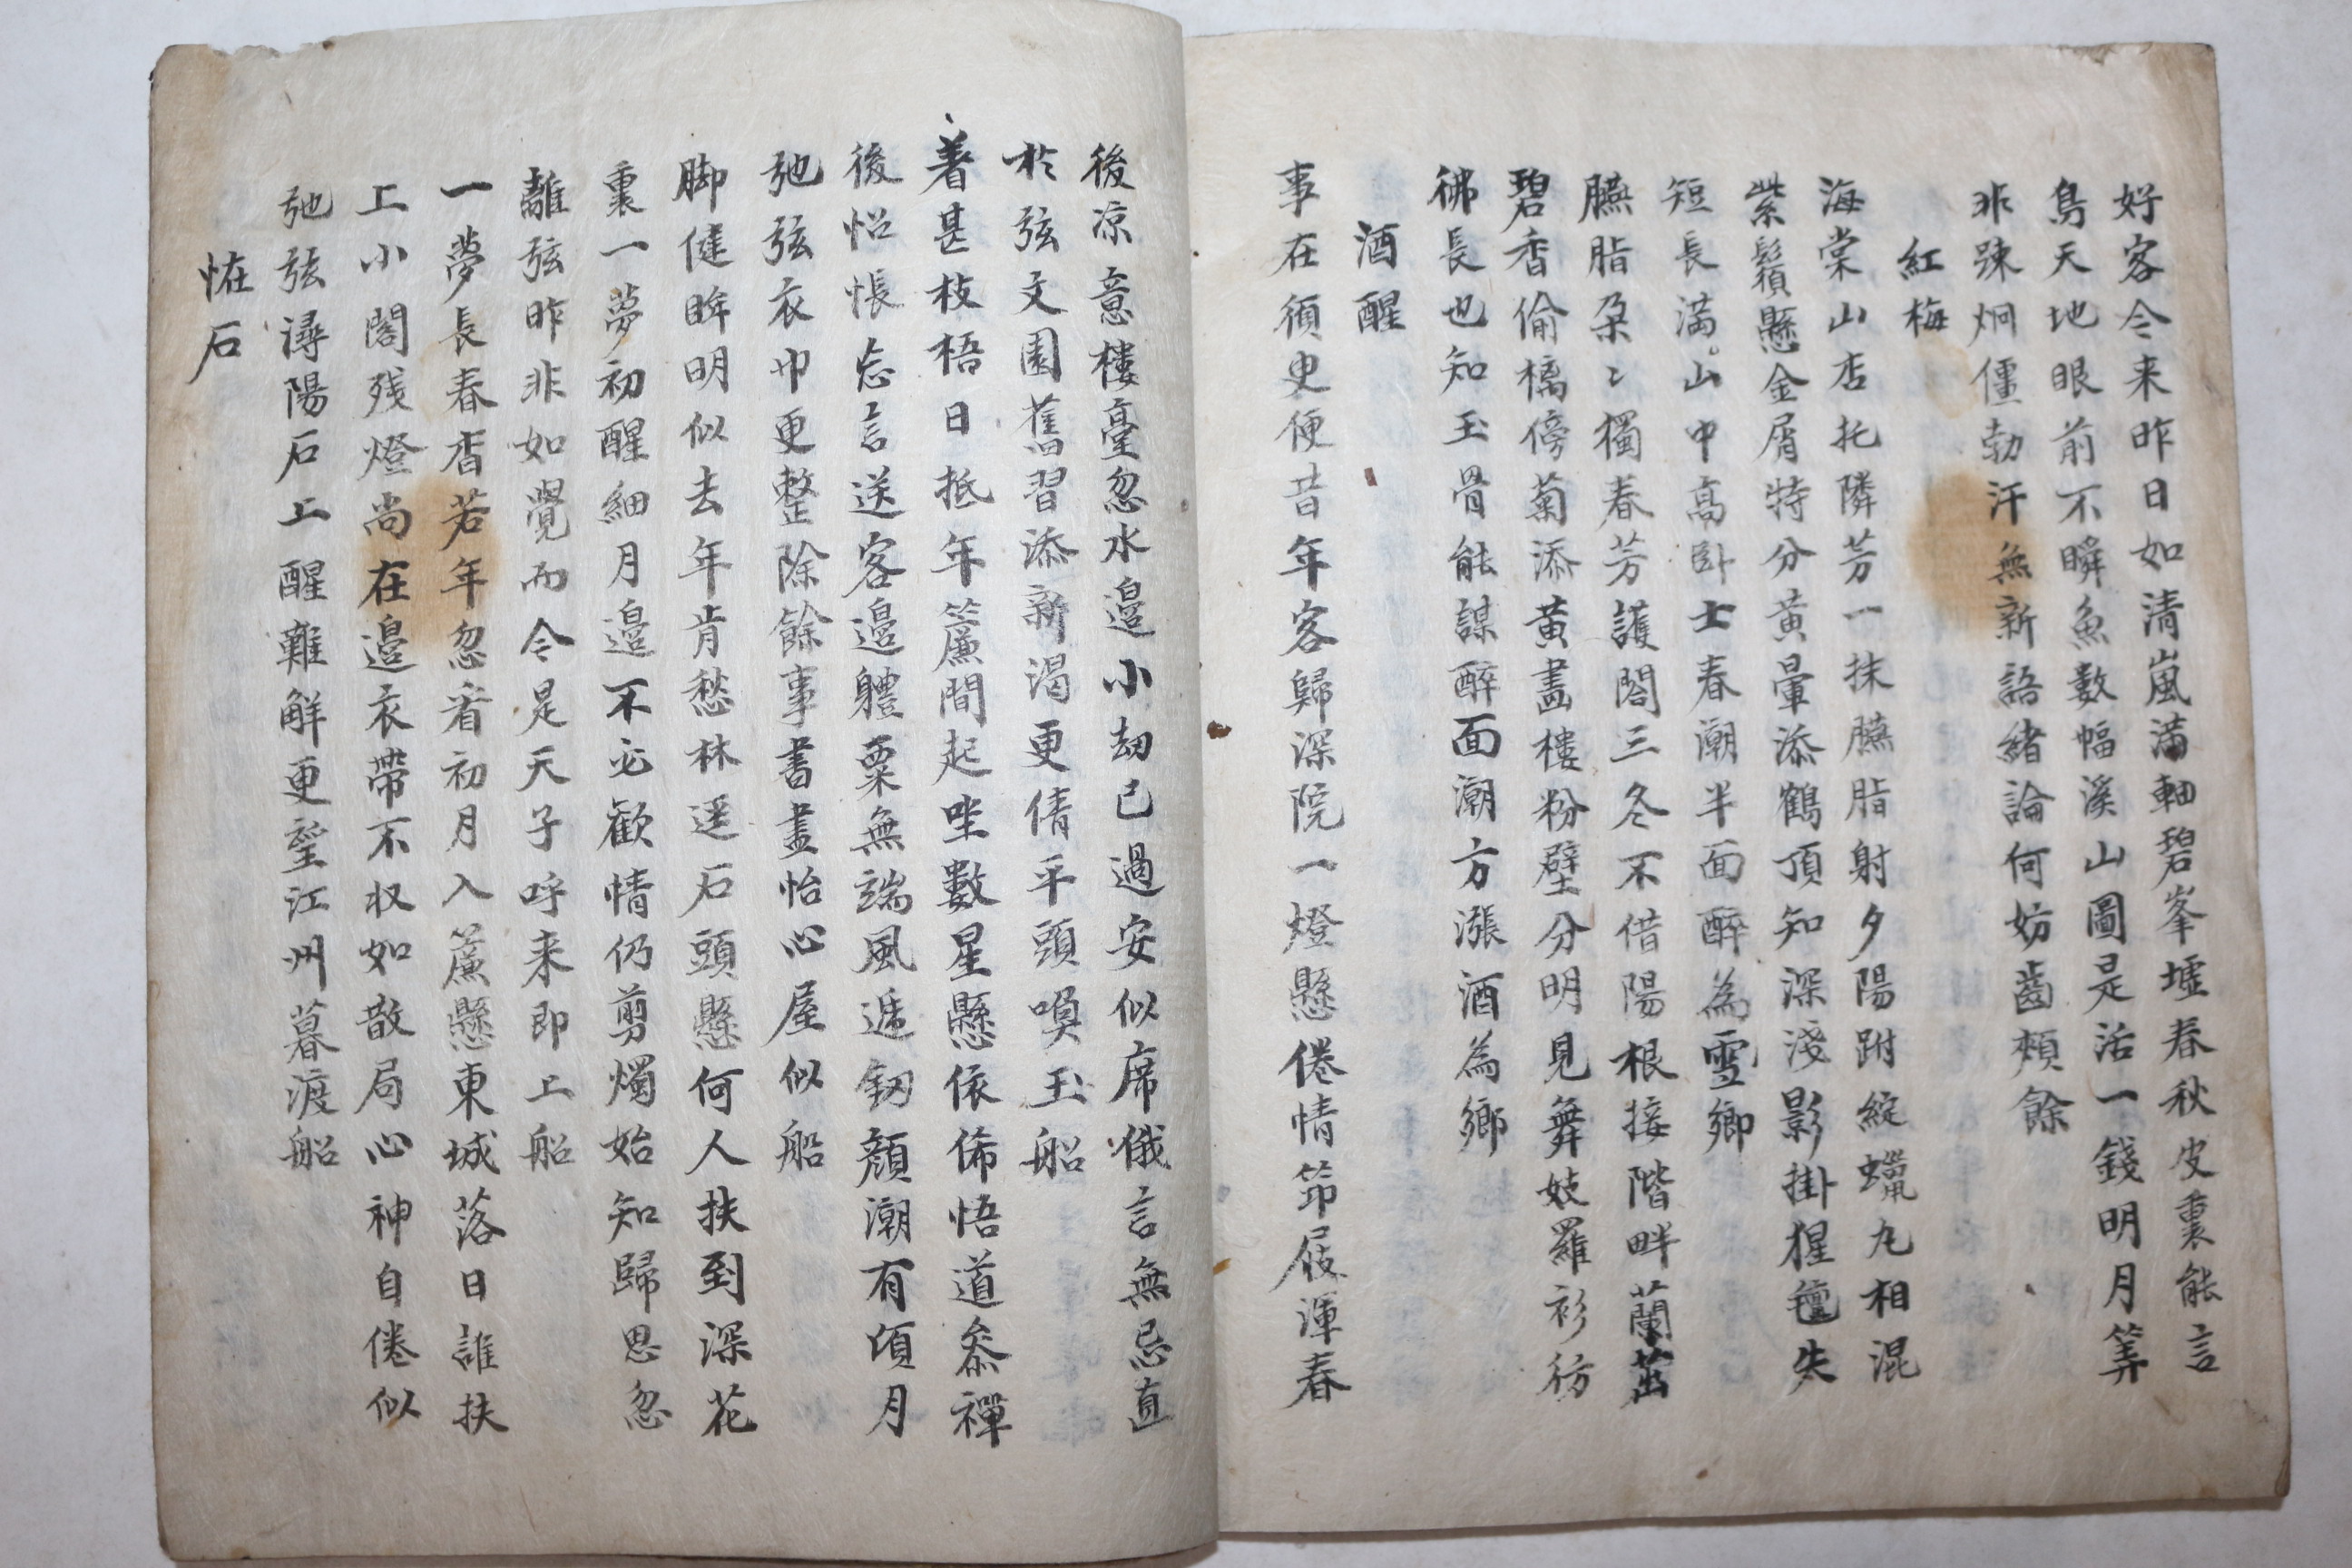 好客今来昨日如清嵐滿軸碧峯墟春秋皮裏能言
鳥天地眼前不瞬魚數幅溪山圖是活一錢明月筭
非踈炯僵勃汗無新語緒論何妨齒頰餘
紅梅
海棠山杏托隣芳一抹臙脂射夕陽跗綻蠟丸相混
紫鬚懸金屑特分黃暈添鶴頂知深淺影掛猩氊失
短長滿山中高卧士春潮半面醉為雪鄉
臙脂朶〻獨春芳護閤三冬不借陽根接階畔蘭茁
碧香偷橘傍菊添黃畵樓粉壁分明見舞妓羅衫彷
彿長也知玉骨能謀醉面潮方漲酒為鄉
酒醒
事在須臾便昔年客歸深院一燈懸倦情笻屐渾春
後凉意樓臺忽水邉小刼已過安似席俄言無忌直
於弦文園舊習添新渴更倩平頭喚玉船
着甚枝梧日抵年簾間起坐數星懸依俙悟道叅禪
後怊悵忘言送客邉軆粟無端風遞釼顔潮有頃月
弛弦衣巾更整除餘事書畫怡心屋似船
脚健眸明似去年肯愁林逕石頭懸何人扶到深花
裏一夢初醒細月邉不必歡情仍剪燭始知歸思忽
離弦昨非如覺而今是天子呼来即上船
一夢長春杳若年忽看初月入簾懸東城落日誰扶
上小閣残燈尚在邉衣帶不收如散局心神自倦似
弛弦潯陽石上醒難解更望江州暮渡船
恠石